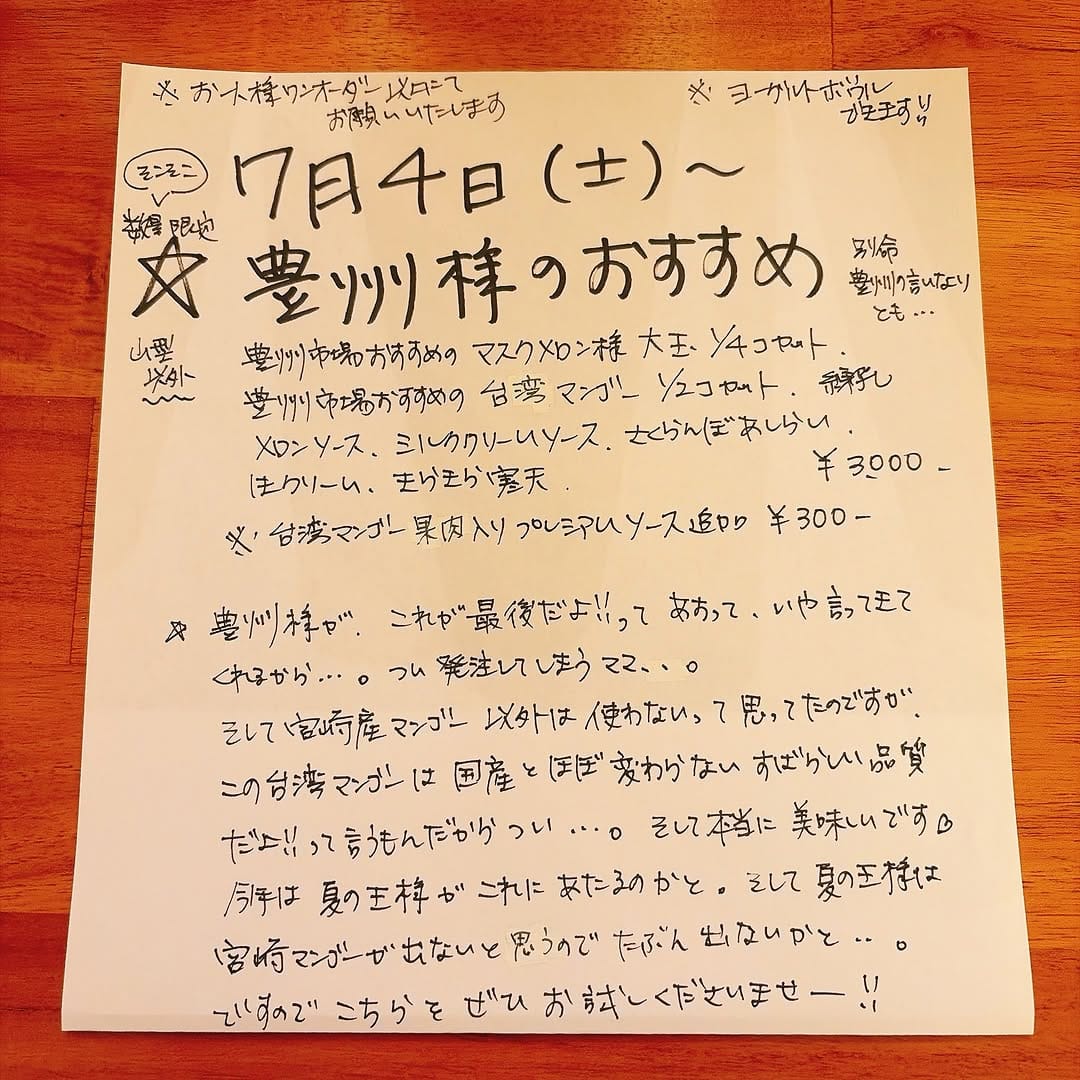 ※ お一人様ワンオーダー以上にて
お願いいたします
※ ヨーグルトボウル
できます!!
そこそこ
数量限定
7月4日(土)~
☆ 豊洲様のおすすめ
別命
豊洲の言いなり
とも…
山型
以外
豊洲市場おすすめの マスクメロン様 大玉 1/4コセット、
豊洲市場おすすめの 台湾マンゴー 1/2コセット、練乳
メロンソース、ミルククリームソース、さくらんぼあしらい、
生クリーム、きらきら寒天、
¥3000-
※ 台湾マンゴー果肉入りプレミアムソース追加 ¥300-
☆ 豊洲様が、これが最後だよ!!って あおって、いや言ってきて
くれるから…。つい発注してしまうママ、、。
そして宮崎産マンゴー以外は使わないって思ってたのですが、
この台湾マンゴーは国産とほぼ変わらないすばらしい品質
だよ!!って言うもんだからつい…。そして本当に美味しいです♡
今年は夏の王様がこれにあたるのかと。そして夏の王様は
宮崎マンゴーが出ないと思うのでたぶん出ないかと…。
ですのでこちらをぜひお試しくださいませー!!